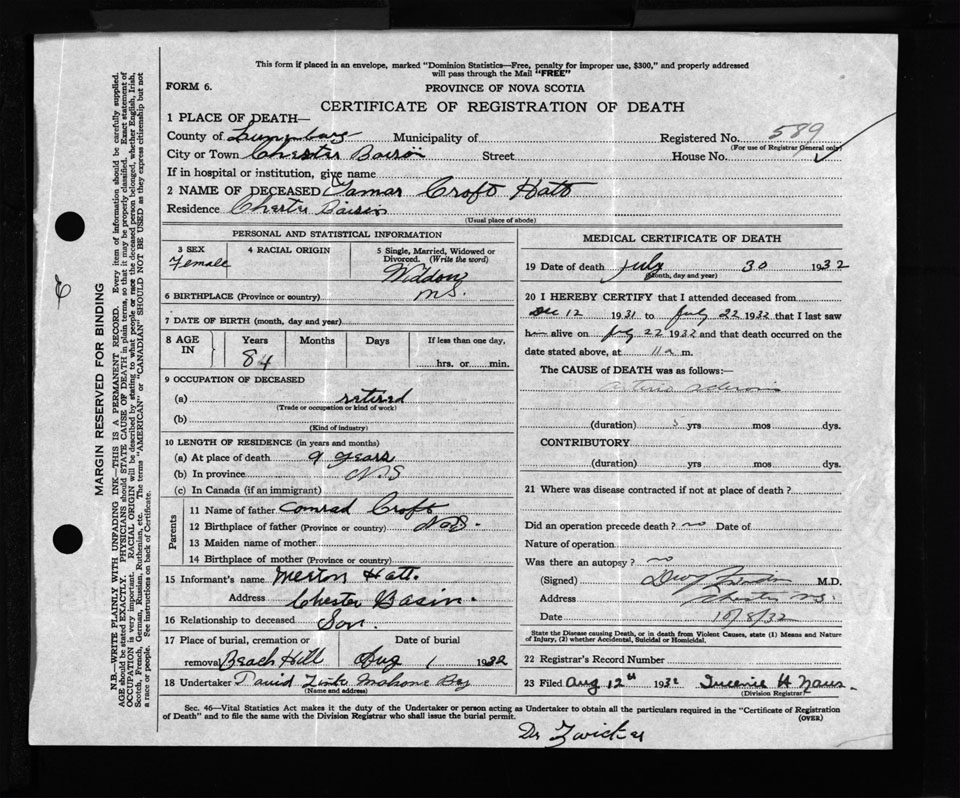 This form if placed in an envelope, marked "Dominion Statistics—Free, penalty for improper use, $300," and properly addressed
will pass through the Mail "FREE"
FORM 6.
PROVINCE OF NOVA SCOTIA
CERTIFICATE OF REGISTRATION OF DEATH
1 PLACE OF DEATH—
County of Lunenburg Municipality of Registered No. 589
(For use of Registrar General only)
City or Town Chester Street House No.
If in hospital or institution, give name
2 NAME OF DECEASED Tamar Croft Hatt
Residence Chester
(Usual place of abode)
PERSONAL AND STATISTICAL INFORMATION
3 SEX 4 RACIAL ORIGIN 5 Single, Married, Widowed or
Divorced. (Write the word)
Female Widdow
6 BIRTHPLACE (Province or country) N.S.
7 DATE OF BIRTH (month, day and year)
8 AGE IN Years Months Days If less than one day,
84 hrs. or min.
9 OCCUPATION OF DECEASED
(a) retired
(Trade or occupation or kind of work)
(b)
(Kind of industry)
10 LENGTH OF RESIDENCE (in years and months)
(a) At place of death 9 years
(b) In province N.S
(c) In Canada (if an immigrant)
Parents
11 Name of father Conrad Croft
12 Birthplace of father (Province or country) N.S.
13 Maiden name of mother
14 Birthplace of mother (Province or country)
15 Informant's name Merton Hatt.
Address Chester Basin.
16 Relationship to deceased Son.
17 Place of burial, cremation or Date of burial
removal Beach Hill Aug 1 1932
18 Undertaker David Mahone Bay
(Name and address)
MEDICAL CERTIFICATE OF DEATH
19 Date of death July 30 1932
(Month, day and year)
20 I HEREBY CERTIFY that I attended deceased from
Dec 12 1931 to July 22 1932 that I last saw
alive on July 22 1932 and that death occurred on
date stated above, at 11 a m.
The CAUSE of DEATH was as follows:
arterio sclerosis
(duration) 5 yrs mos dys.
CONTRIBUTORY
(duration) yrs mos dys.
21 Where was disease contracted if not at place of death ?
Did an operation precede death ? no Date of
Nature of operation
Was there an autopsy ? no
(Signed) M.D.
Address Chester N.S.
Date 10/8/32
State the Disease causing Death, or in death from Violent Causes, state (1) Means and Nature
of Injury, (2) whether Accidental, Suicidal or Homicidal.
22 Registrar's Record Number
23 Filed Aug 12th 1932
(Division Registrar)
Sec. 46—Vital Statistics Act makes it the duty of the Undertaker or person acting as Undertaker to obtain all the particulars required in the "Certificate of Registration
of Death" and to file the same with the Division Registrar who shall issue the burial permit.
(OVER)
Dr Zwicker
MARGIN RESERVED FOR BINDING
N.B.—WRITE PLAINLY WITH UNFADING INK—THIS IS A PERMANENT RECORD. Every item of information should be carefully supplied.
AGE should be stated EXACTLY. PHYSICIANS should STATE CAUSE OF DEATH in plain terms, so that it may be properly classified. Exact statement of
OCCUPATION is very important. RACIAL ORIGIN will be described by stating to what people or race the deceased person belonged, whether English, Irish,
Scotch, French, German, Russian, Ruthenian, etc. The terms "AMERICAN" or "CANADIAN" SHOULD NOT BE USED as they express citizenship but not
a race or people. See instructions on back of Certificate.